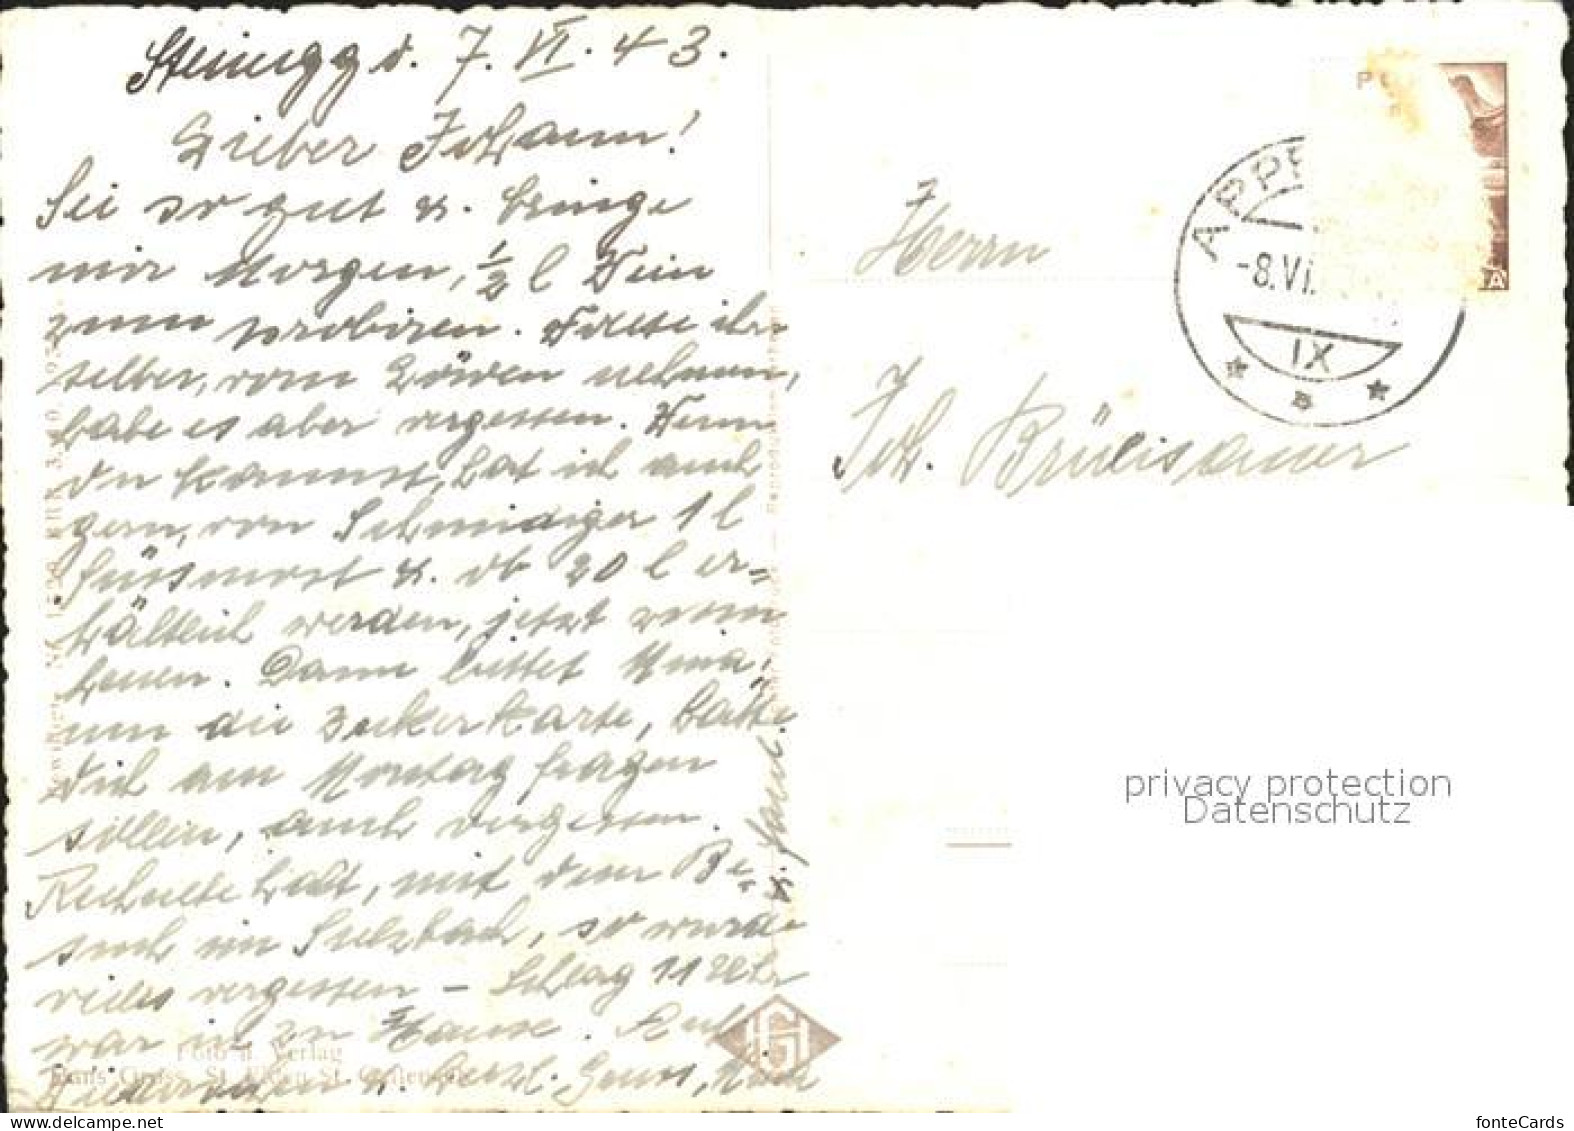 Steinegg d. 7. VI. 43.
Lieber Johann!
Sei so gut u. bringe
mir Morgen, ½ l Wein
zum probiren. Wollte ihn
selber, vom Löwen nehmen,
habe es aber vergessen. Wenn
du kannst, hat ich auch
gern, von Schmidiger 1 l
Süssmost u. ob 20 l er=
hältlich werden, jetzt vom
heuen. Dann bittet Mina,
um die Zuckerkarte, hätte
Dich am Montag fragen
sollen, auch vergessen.
Rechnete halt, mit dem Be-
such in Sulzbach, so wurde
vieles vergessen – Schlag 11 Uhr
war in zu Hause. Auf
Wiedersehen u. herzl. Gruss,
Foto u. Verlag
Hans Gross, St. Gallen
HG
POS
APPE
-8.VI.
IX
Herrn
Joh. Brülisauer
privacy protection
Datenschutz
fonteCards